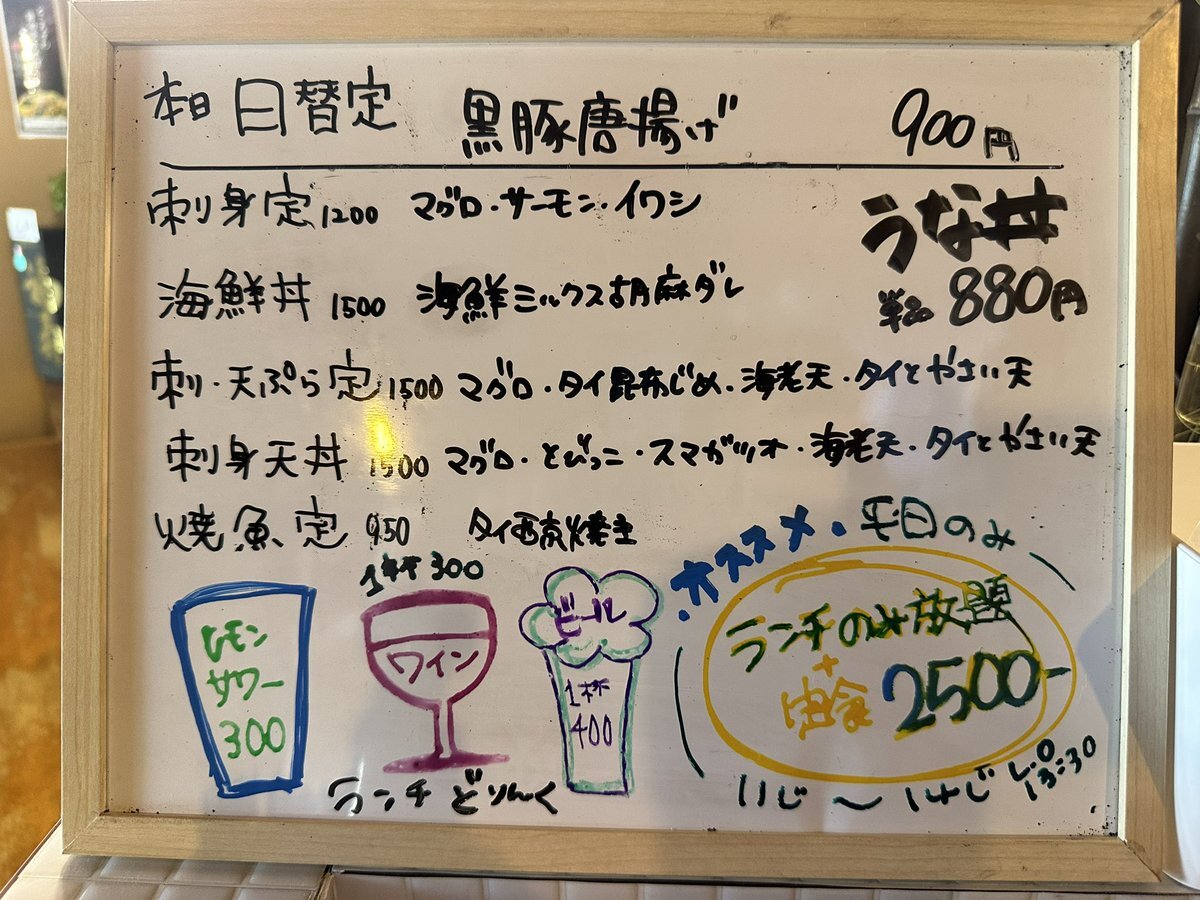 本日 日替定 黒豚唐揚げ 900円
刺身定 1200 マグロ・サーモン・イワシ
うな丼
単品 880円
海鮮丼 1500 海鮮ミックス胡麻ダレ
刺・天ぷら定 1500 マグロ・タイ昆布じめ・海老天・タイとやさい天
刺身天丼 1500 マグロ・とびっこ・スマガツオ・海老天・タイとやさい天
焼魚定 950 タイ西京焼き
レモン
サワー
300
1杯300
ワイン
ビール
1杯
400
ランチどりんく
・オススメ・平日のみ
ランチのみ放題
+
定食 2500-
11じ〜14じ L.O
13:30